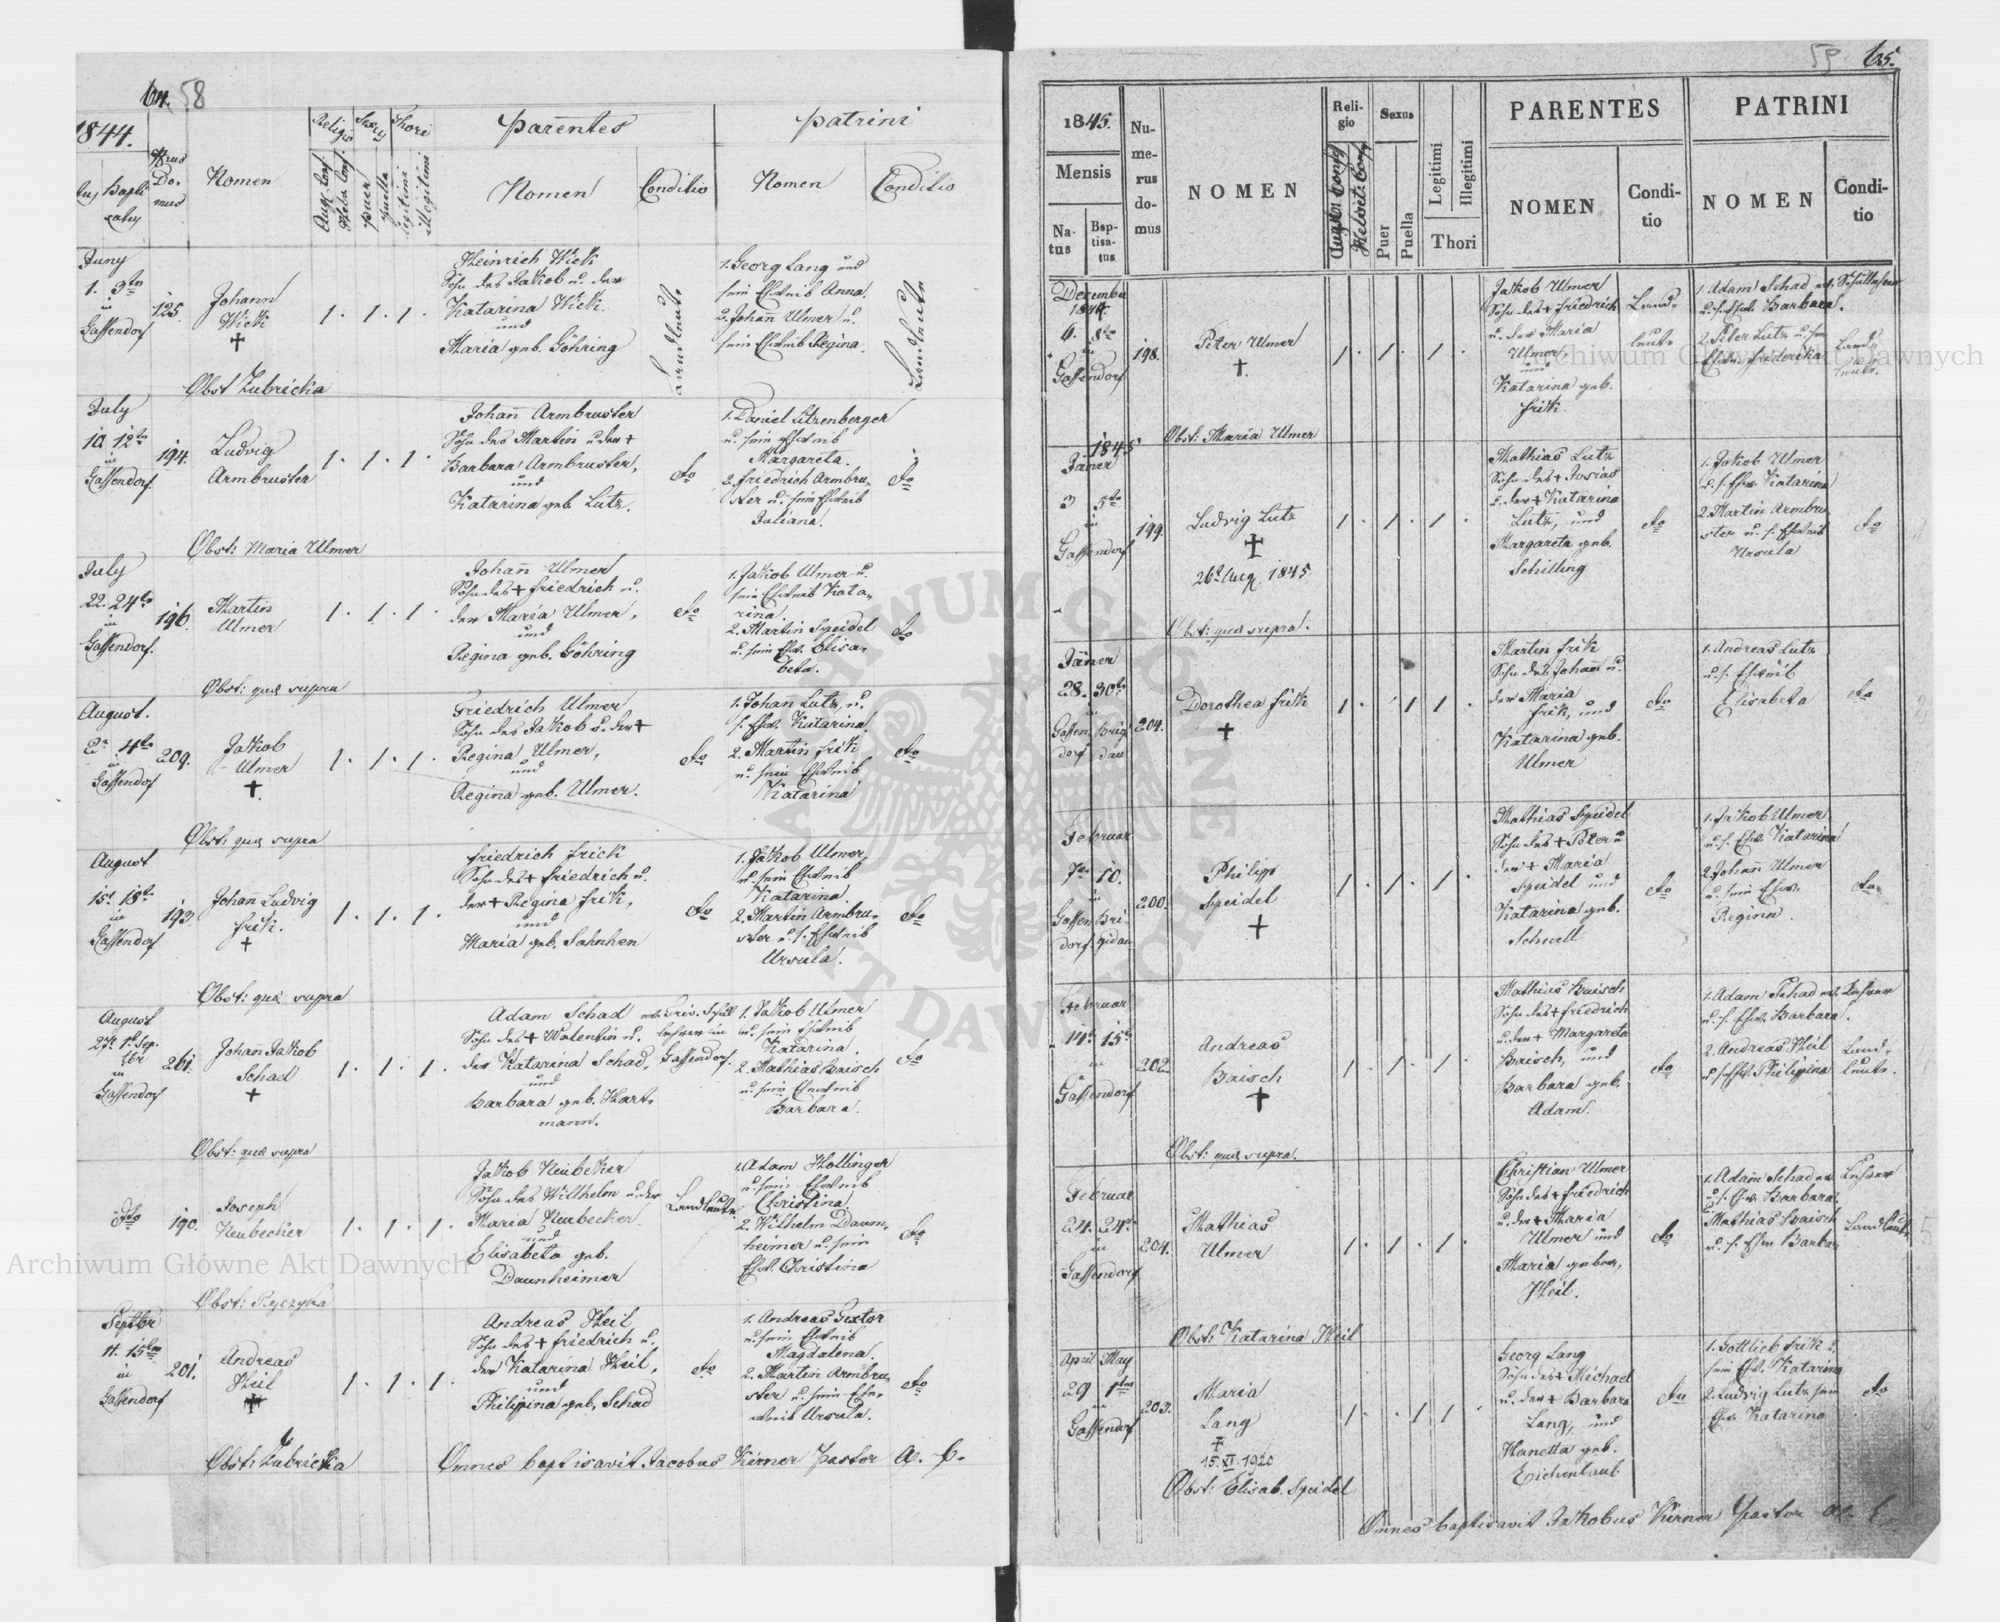 64. 58
1844.
Nrus Domus
Nomen
Religio
Sexus
Thori
Parentes
Patrini
Aug. Conf.
Helv. Conf.
puer
puella
legitimi
illegitimi
Nomen
Conditio
Nomen
Conditio
Juny
1. 3tn
in
Gassendorf
125.
Johann
Wick
†
1. 1. 1.
Heinrich Wick
Sohn des Jakob u. der
Katarina Wick.
und
Maria geb. Göhring
Landleute
1. Georg Lang und
sein Eheweib Anna.
2. Johann Ulmer u.
sein Eheweib Regina.
Landleute
Obst Zubricka
July
10 12tn
in
Gassendorf.
194.
Ludwig
Armbruster
1. 1. 1.
Johann Armbruster
Sohn des Martin u der †
Barbara Armbruster,
und
Katarina geb. Lutz.
dto
1. Daniel Litzenberger
u. sein Eheweib
Margareta.
2. Friedrich Armbru-
ster u. sein Eheweib
Juliana.
dto
Obst: Maria Ulmer
July
22. 24tn
in
Gassendorf.
196.
Martin
Ulmer
1. 1. 1.
Johann Ulmer
Sohn des † Friedrich u.
der Maria Ulmer,
und
Regina geb. Göhring
dto
1. Jakob Ulmer u.
sein Eheweib Kata-
rina.
2. Martin Speidel
u. sein Ehw. Elisa-
beta.
dto
Obst: quae supra
August.
2n 4tn
in
Gassendorf
209.
Jakob
Ulmer
†.
1. 1. 1.
Friedrich Ulmer
Sohn des Jakob u. der †
Regina Ulmer,
und
Regina geb. Ulmer.
dto
1. Johann Lutz, u.
s. Ehw. Katarina.
2. Martin Frik
u. sein Eheweib
Katarina
dto
Obst: quae supra
August
15t 18tn
in
Gassendorf
193.
Johann Ludvig
Frik.
†
1. 1. 1.
Friedrich Frick
Sohn des † Friedrich u.
der † Regina Frik,
und
Maria geb. Sahnhen
dto
1. Jakob Ulmer,
u. sein Eheweib
Katarina.
2. Martin Armbru-
ster u. s. Eheweib
Ursula.
dto
Obst: quae supra
August
27t 1t Sep.
in
Gassendorf
261.
Johann Jakob
Schad
†
1. 1. 1.
Adam Schad
Sohn des † Walentin u.
der Katarina Schad,
und
Barbara geb. Hart-
mann.
ev. Priv. Schull
lehrer in
Gassendorf.
1. Jakob Ulmer
u. sein Eheweib
Katarina.
2. Mathias Baisch
u. sein Eheweib
Barbara.
dto
Obst: quae supra
dto
190.
Joseph
Neubecker
1. 1. 1.
Jakob Neubeker
Sohn des Willhelm u. der
Maria Neubecker.
und
Elisabeta geb.
Daunheimer
Landleute
1. Adam Hollinger
u. sein Eheweib
Christina.
2. Wilhelm Daun-
heimer u. sein
Ehw. Christina
dto
Obst: Ryczyka
Septber
11. 15tn
in
Gassendorf
201.
Andreas
Heil
†
1. 1. 1.
Andreas Heil
Sohn des † Friedrich u.
der Katarina Heil,
und
Philippina geb. Schad
dto
1. Andreas Textor
u. sein Eheweib
Magdalena.
2. Martin Armbru-
ster u. sein Ehe-
weib Ursula.
dto
Obst: Zubricka
Omnes baptisavit Jacobus Kürner Pastor A. C.
59 65.
1845.
Mensis
Natus
Baptisatus
Numerus domus
NOMEN
Religio
August. Confess
Helvet. Conf.
Sexus
Puer
Puella
Legitimi
Illegitimi
Thori
PARENTES
NOMEN
Conditio
PATRINI
NOMEN
Conditio
December
1844.
6. 8tn
in
Gassendorf
198.
Peter Ulmer
†.
1. 1. 1.
Jakob Ulmer
Sohn des † Friedrich
u. der Maria
Ulmer,
und
Katarina geb.
Frik
Land-
leute
1. Adam Schad ev. Schullehrer
u. s. Ehew. Barbara.
2. Peter Lutz u. sein
Ehew. Friederika
Land-
leute.
Obst: Maria Ulmer
1845
Jäner
3 5tn
in
Gassendorf
199.
Ludvig Lutz
†
26t Aug. 1845
1. 1. 1.
Mathias Lutz
Sohn des † Josias
u. der † Katarina
Lutz, und
Margareta geb.
Schilling
dto
1. Jakob Ulmer
u. s. Ehw. Katarina
2. Martin Armbru
ster u. s. Eheweib
Ursula
dto
Obst: quae supra.
Jäner
28. 30tn
in
Gassen Brig
dorf dau
204.
Dorothea Frik
†
1. 1 1.
Martin Frik
Sohn des Johann u.
der Maria
Frik, und
Katarina geb.
Ulmer
dto
1. Andreas Lutz
u. s. Eheweib
Elisabeta
dto
Februar
7tn 10.
in
Gassen Bri-
dorf gidau
200.
Philipp
Speidel
†
1. 1. 1.
Mathias Speidel
Sohn des † Peter u
der † Maria
Speidel und
Katarina geb.
Schwell
dto
1. Jakob Ulmer
u. s. Ehw. Katarina
2. Johann Ulmer
u. sein Ehw.
Regina.
dto
Februar
14tn 15tn
in
Gassendorf
202
Andreas
Baisch
†
1. 1. 1.
Mathias Baisch
Sohn des † Friedrich
u. der † Margareta
Baisch, und
Barbara geb.
Adam.
dto
1. Adam Schad ev. Lehrer
u. s. Ehw. Barbara.
2. Andreas Heil
u. s. Ehw. Philippina
Land-
leute.
Obst: quae supra.
Februar
24. 24tn
in
Gassendorf
204.
Mathias
Ulmer
1. 1. 1.
Christian Ulmer
Sohn des † Friedrich
u. der † Maria
Ulmer und
Maria gebor.
Heil.
dto
1. Adam Schad ev. Lehrer
u. s. Ehw. Barbara.
Mathias Baisch
u. s. Ehw Barbar.
Landleute
Obst: Katarina Heil
April May
29 1tn
in
Gassendorf
203.
Maria
Lang
†
15. XI. 1920
1. 1 1.
Georg Lang
Sohn des † Michael
u. der † Barbara
Lang, und
Hanetta geb.
Eichenlaub
dto
1. Gottlieb Frik u.
sein Ehw. Katarina
2. Ludvig Lutz sein
Ehw. Katarina
dto
Obst: Elisab. Speidel
Omnes baptisavit Jakobus Kürner Pastor A. C.
Archiwum Główne Akt Dawnych
Archiwum Główne Akt Dawnych
ARCHIWUM GŁÓWNE AKT DAWNYCH